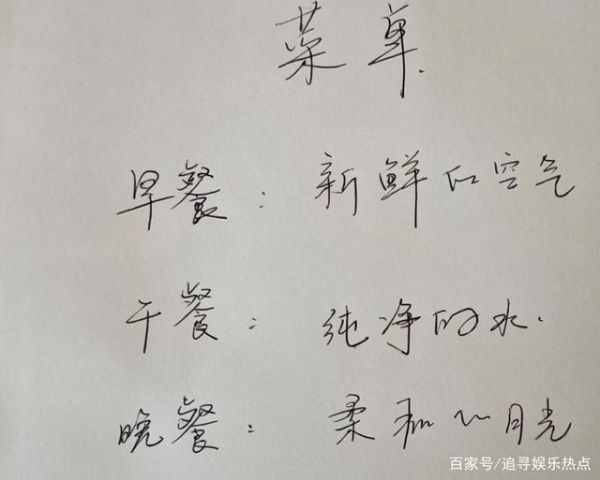 菜单.
早餐：新鲜的空气
干餐：纯净的水.
晚餐：柔和的月光
百家号/追寻娱乐热点